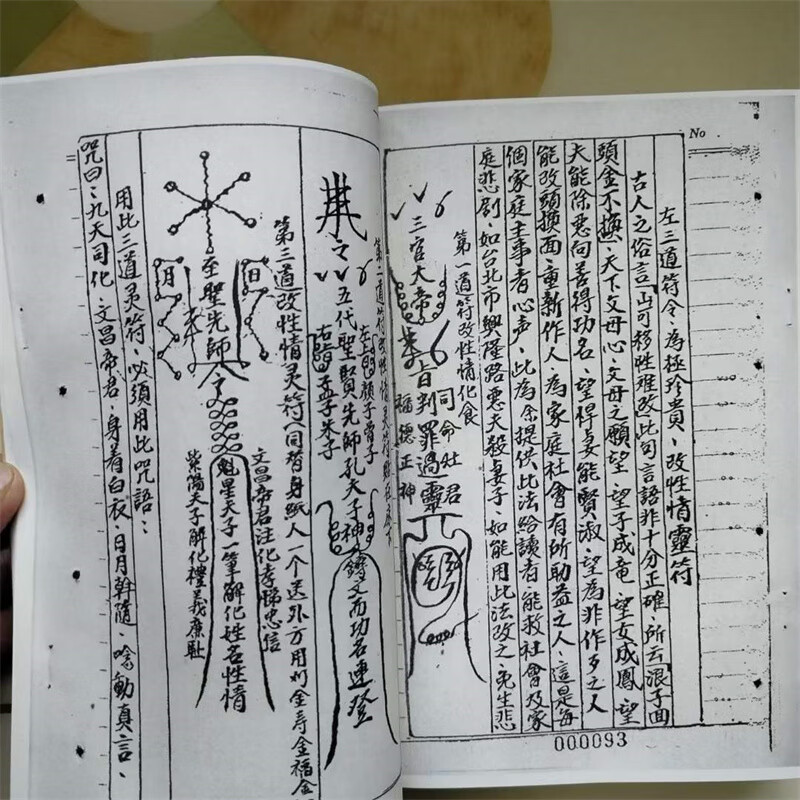 No
左三道符令、為極珍貴、改性情靈符
古人之俗言「山可移性难改此句言語非十分正確、所云「浪子回
頭金不換、天下父母心、父母之願望、望子成竜、望女成鳳、望
夫能除惡向善得功名、望得妻能賢淑、望為非作歹之人
能改頭換面、重新作人、為家庭社會有所助益之人、這是每
個家庭主事者心声、此為余提供此法給讀者、能救社會及家
庭悲剧、如台北市興隆路惡夫殺妻子、如能用此法改之、免生悲
第一道符改性情化食
三官大帝
司命灶君
旨判罪過靈
福德正神
000093
第二道符改性情灵符
之
五代聖賢先師孔夫子神
左旨顏子曾子
右旨孟子朱子
文而功名連登
第三道改性情灵符(同替身紙人一个送外方用刈金寿金福金
至聖先師
令
日
月
魁星夫子一筆解化姓名性情
文昌帝君注化孝悌忠信
紫陽夫子解化禮義廉耻
用此三道灵符、必須用此咒語：
咒曰：九天司化、文昌帝君、身着白衣、日月斡隨、唫動真言、